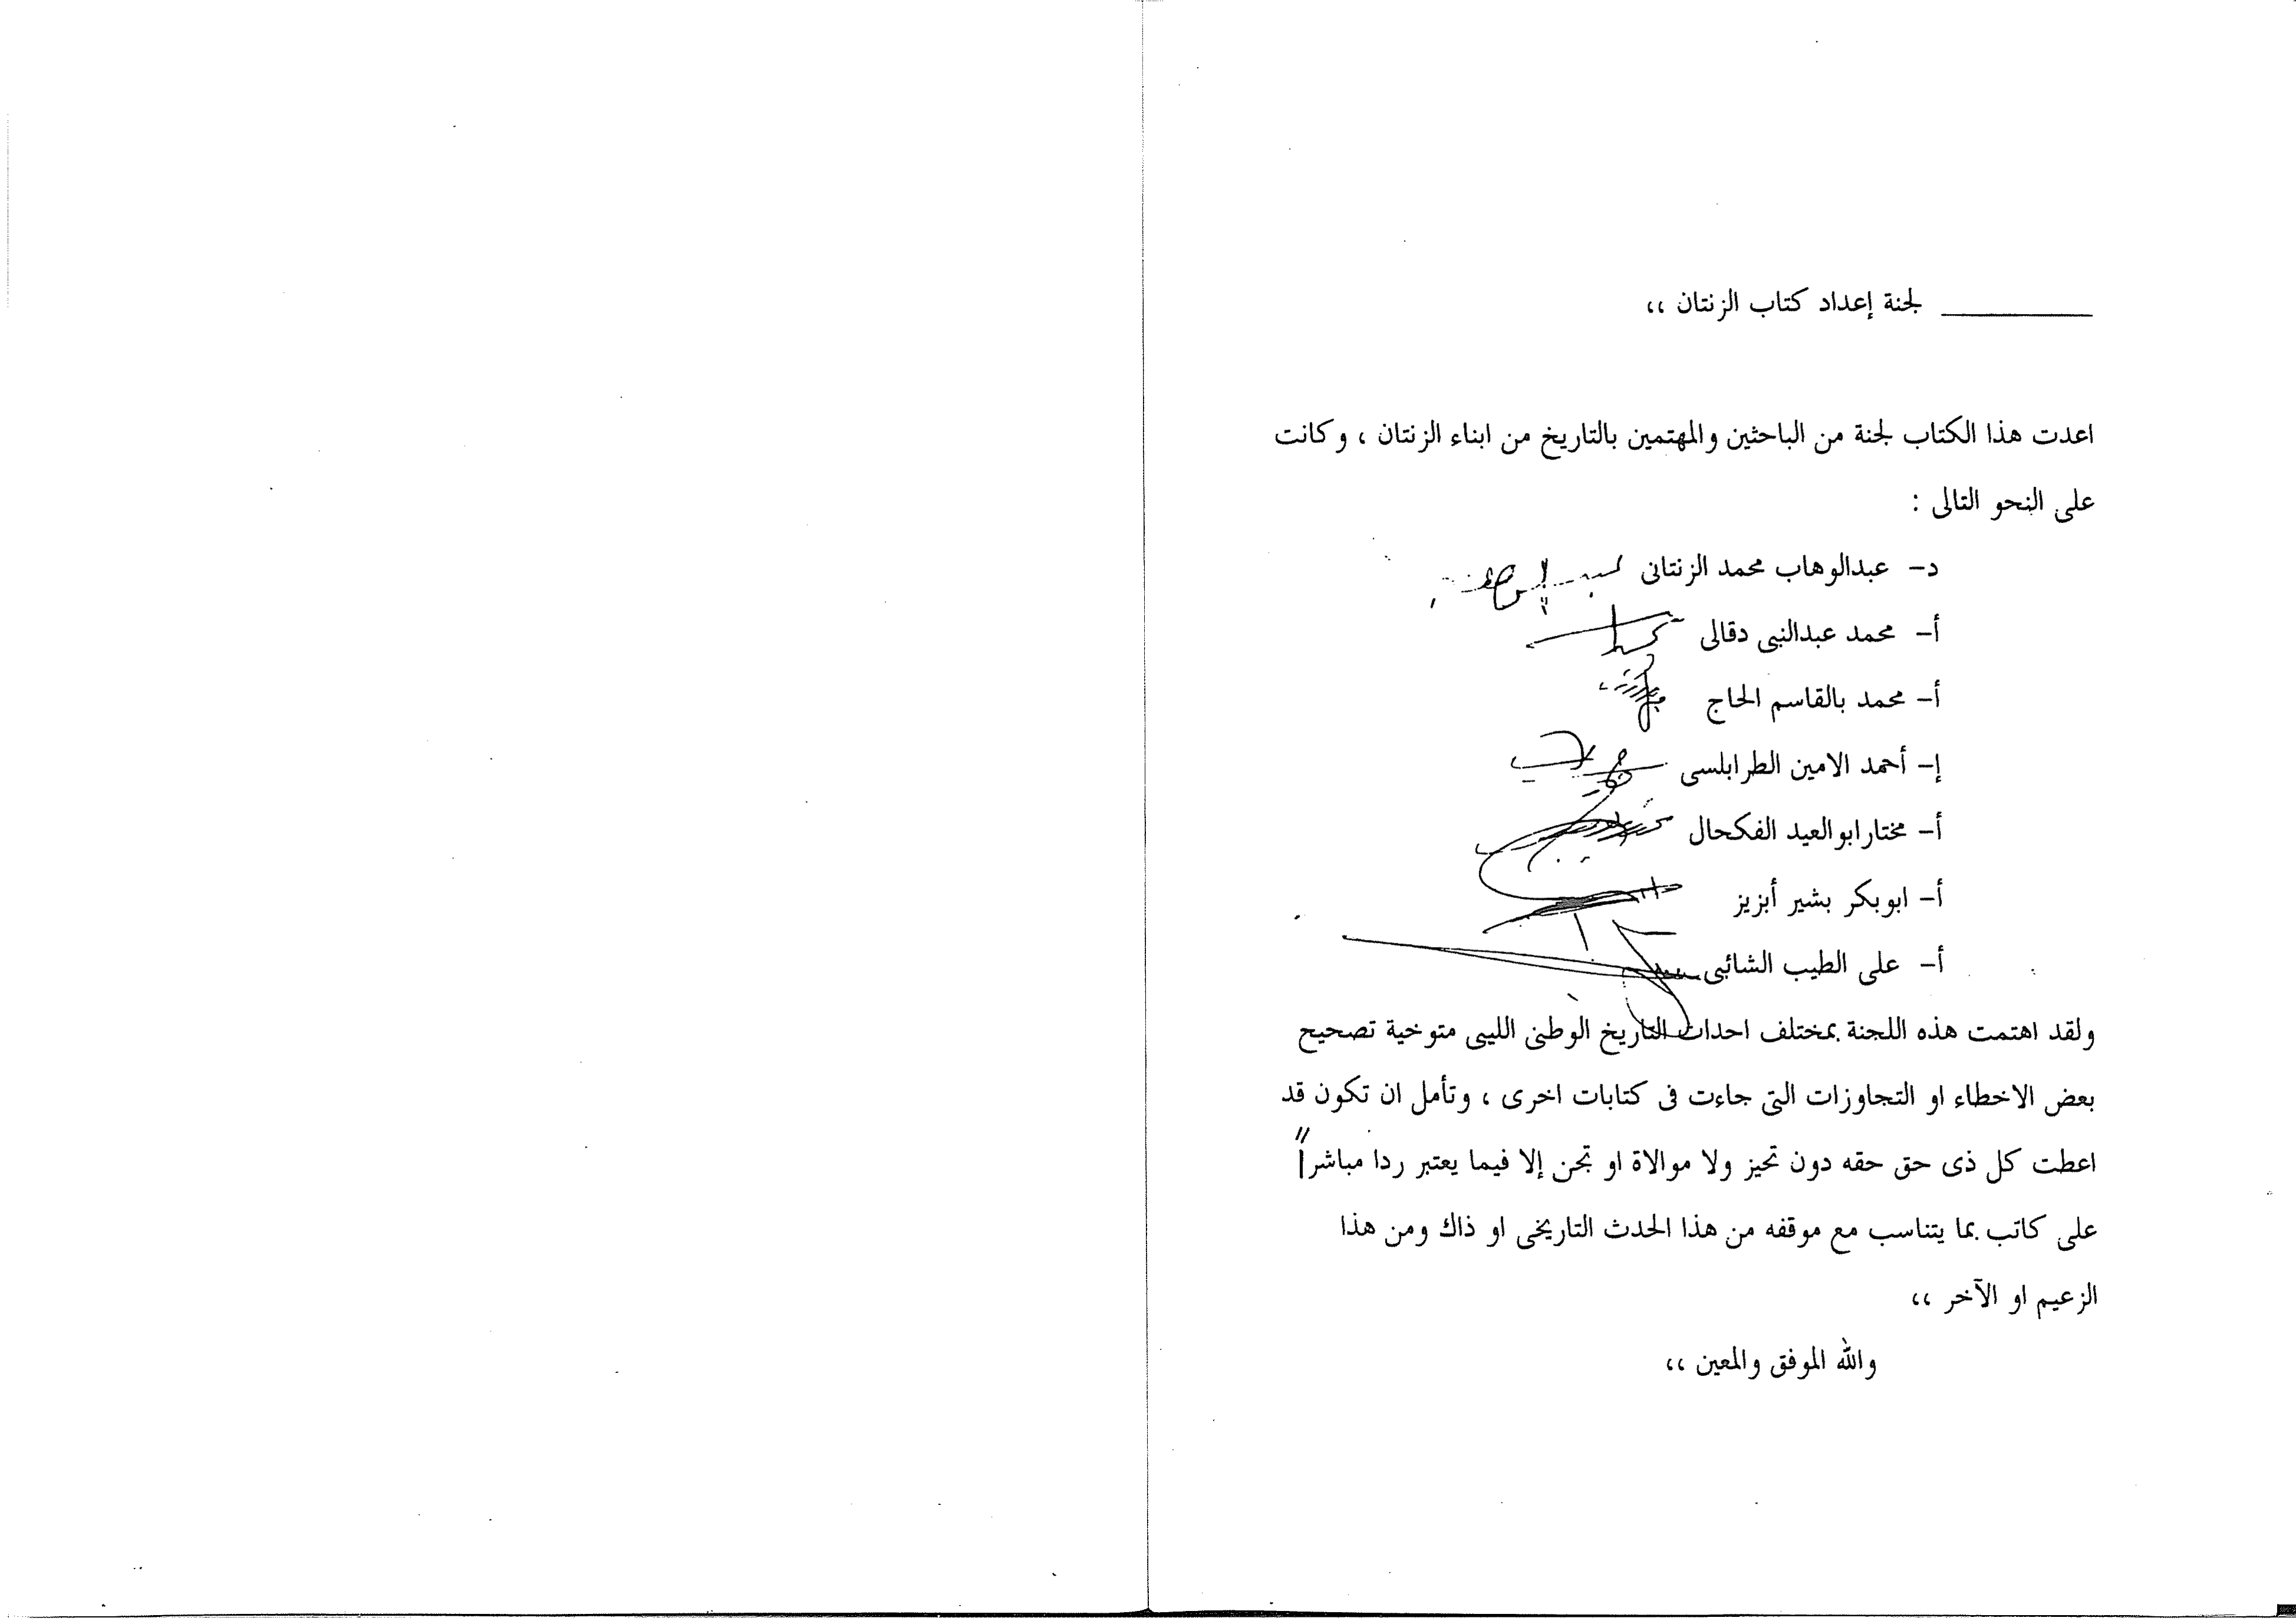 لجنة إعداد كتاب الزنتان ،،
اعدت هذا الكتاب لجنة من الباحثين والمهتمين بالتاريخ من ابناء الزنتان ، وكانت
على النحو التالى :
د- عبدالوهاب محمد الزنتانى
أ- محمد عبدالنبى دقالى
أ- محمد بالقاسم الحاج
إ- أحمد الامين الطرابلسى
أ- مختار ابوالعيد الفكحال
أ- ابوبكر بشير أبزيز
أ- على الطيب الشائبى
ولقد اهتمت هذه اللجنة بمختلف احداث التاريخ الوطنى الليبى متوخية تصحيح
بعض الاخطاء او التجاوزات التى جاءت فى كتابات اخرى ، وتأمل ان تكون قد
اعطت كل ذى حق حقه دون تحيز ولا موالاة او تجن إلا فيما يعتبر ردا مباشراً
على كاتب بما يتناسب مع موقفه من هذا الحدث التاريخى او ذاك ومن هذا
الزعيم او الآخر ،،
والله الموفق والمعين ،،